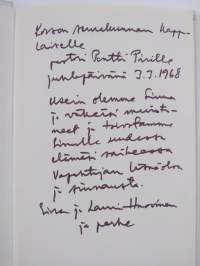 Korson seurakunnan kapp-
laiselle
pastori Pentti Pirille
juhlapäivänä 3.3.1968
Usein olemme Sinua
ja väkeäsi muista-
neet ja toivotamme
Sinulle uudessa
elämäsi vaiheessa
Vapahtajan läsnäoloa
ja siunausta.
Liisa ja Lauri Huovinen
ja perhe